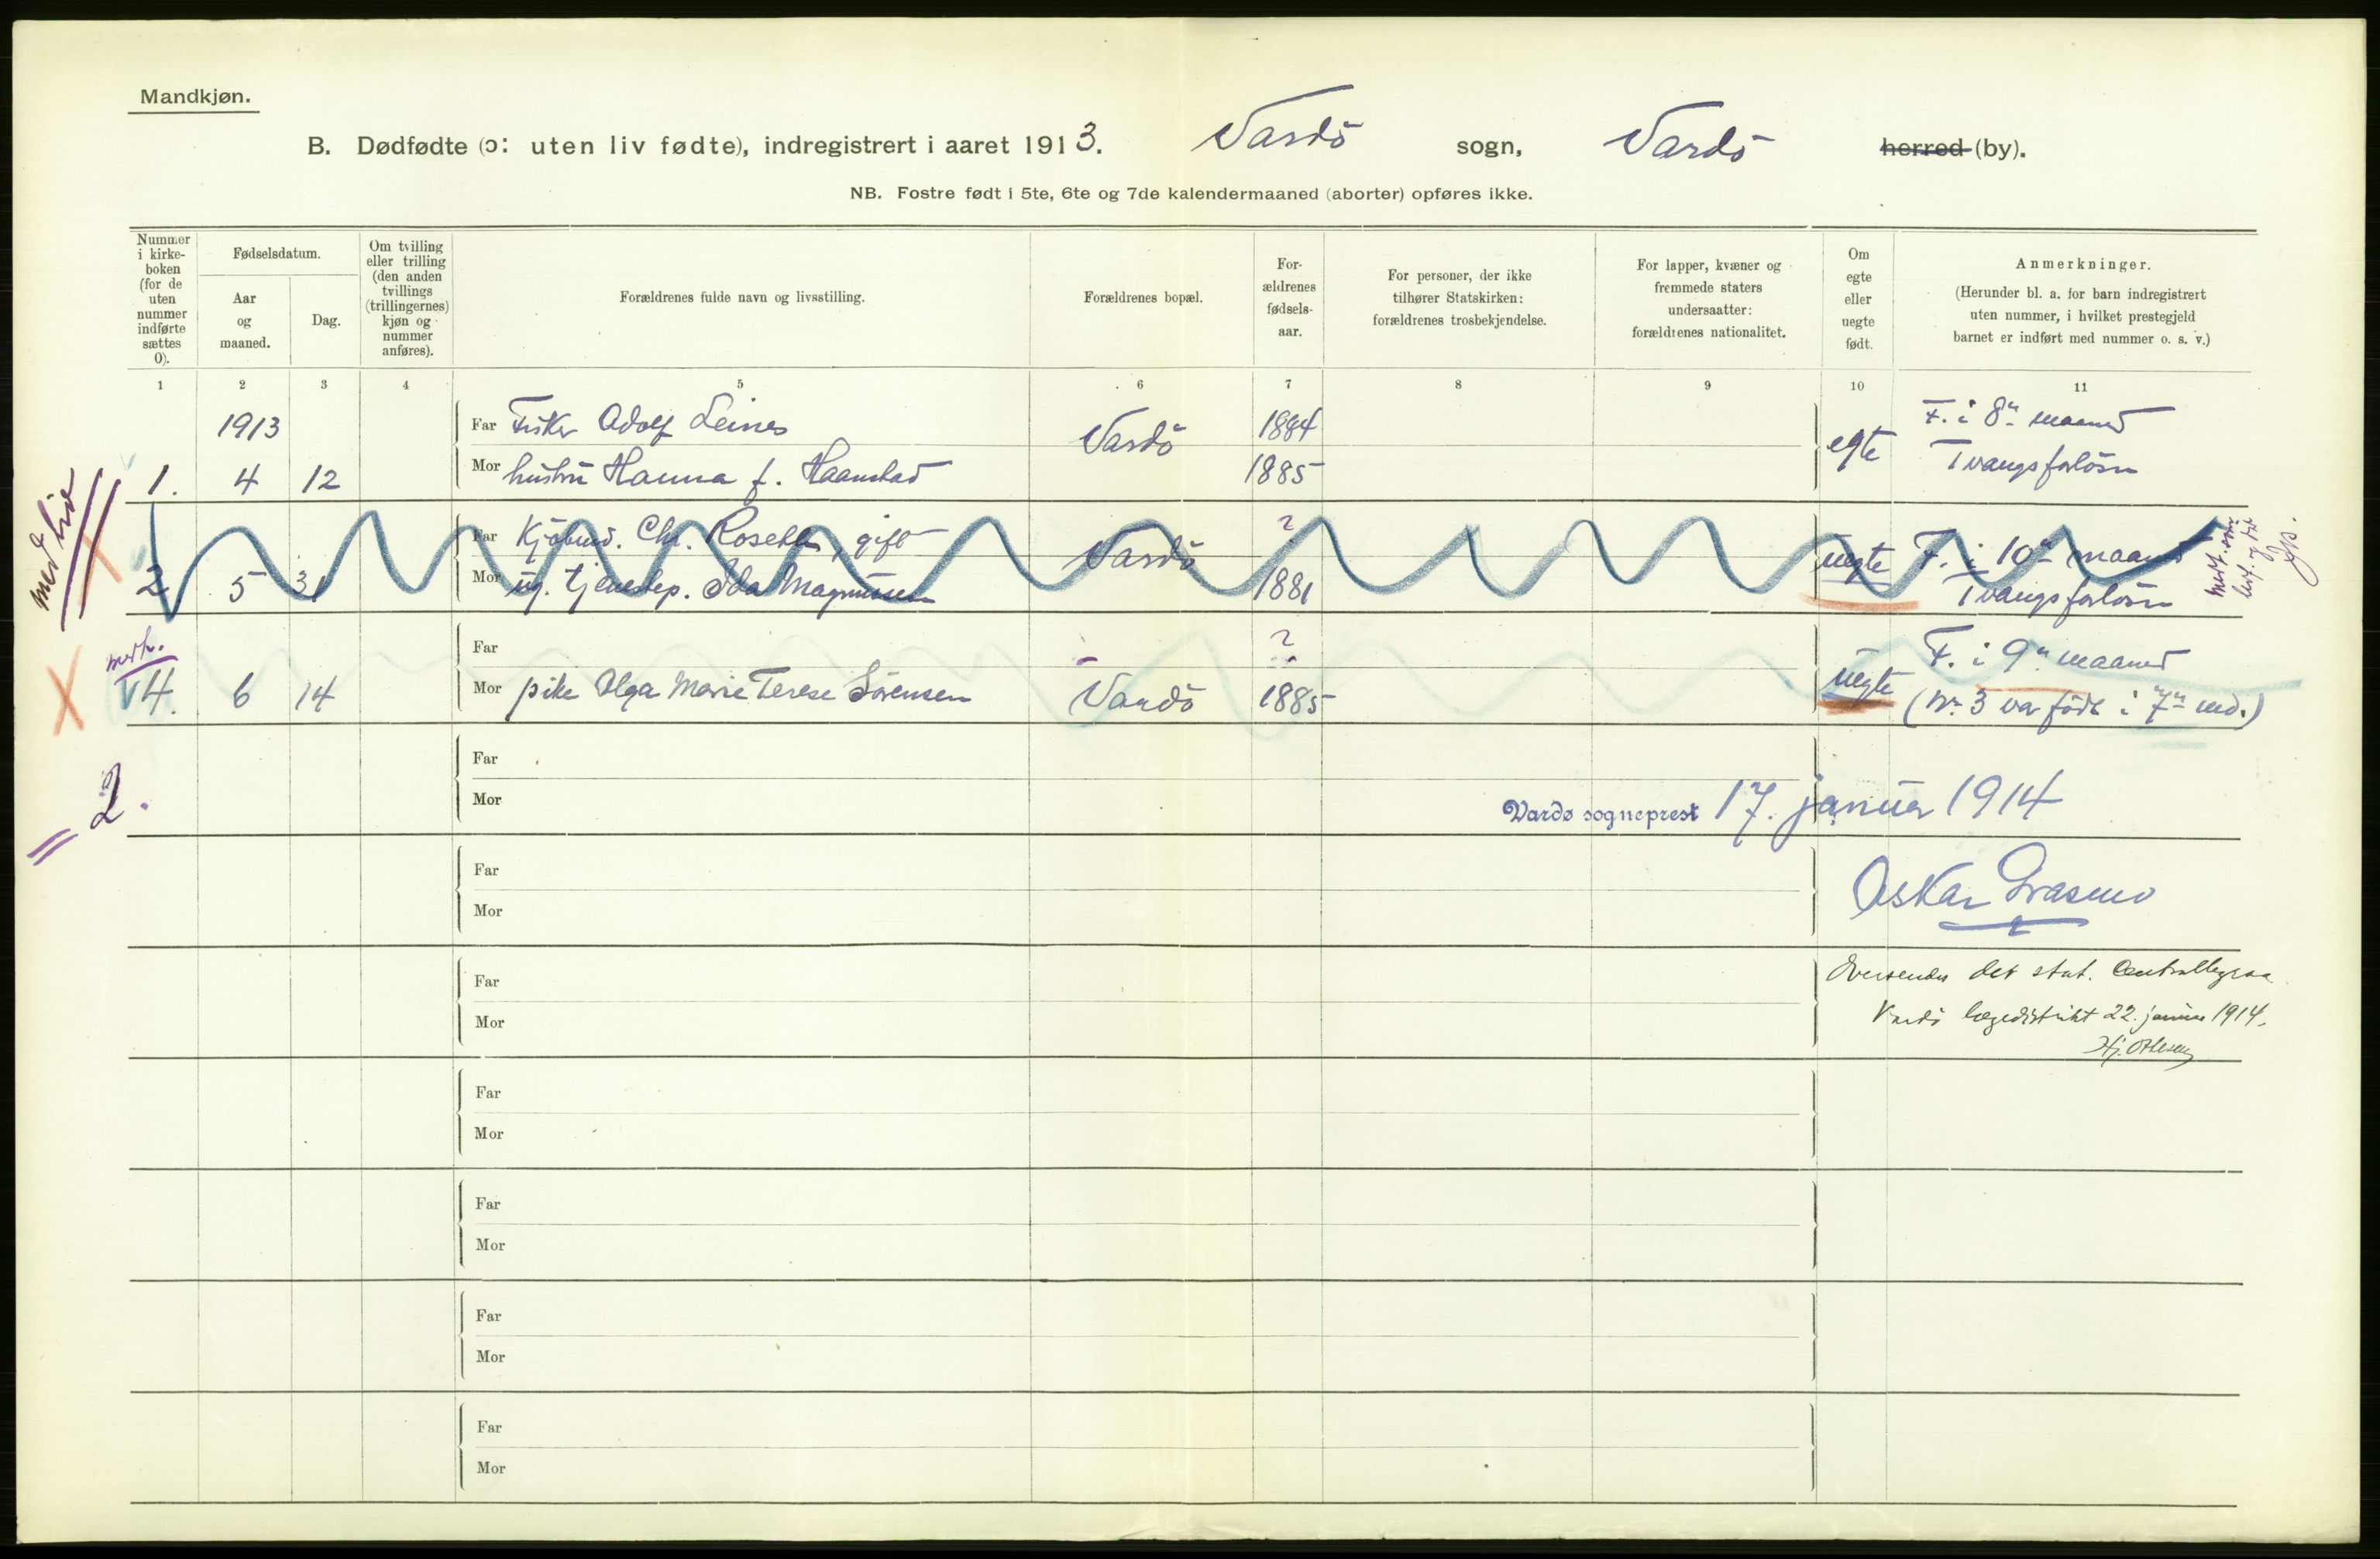 Mandkjøn.
B. Dødfødte (ɔ: uten liv fødte), indregistrert i aaret 1913. Vardö sogn, Vardö herred (by).
NB. Fostre født i 5te, 6te og 7de kalendermaaned (aborter) opføres ikke.
Nummer i kirke-boken (for de uten nummer indførte sættes 0).
Fødselsdatum.
Aar og maaned.
Dag.
Om tvilling eller trilling (den anden tvillings (trillingernes) kjøn og nummer anføres).
Forældrenes fulde navn og livsstilling.
Forældrenes bopæl.
For-ældrenes fødsels-aar.
For personer, der ikke tilhører Statskirken: forældrenes trosbekjendelse.
For lapper, kvæner og fremmede staters undersaatter: forældrenes nationalitet.
Om egte eller uegte født.
Anmerkninger.
(Herunder bl. a. for barn indregistrert uten nummer, i hvilket prestegjeld barnet er indført med nummer o. s. v.)
1 2 3 4 5 6 7 8 9 10 11
1913 Far Fisker Adolf Leines Vardö 1884 egte F. i 8n maaned
1. 4 12 Mor hustru Hanna f. Haanstad 1885 Tvangsforlösn
med liv
Far Kjöbmd. Chr. , gift Vardö ? uegte F. i 10n maaned
2 5 31 Mor ug. tjenestep. Ida Magnussen 1881 Tvangsforlösn
Far ? uegte F. i 9n maaned
4. 6 14 Mor pike Olga Marie Terese Sörensen Vardö 1885 (Nr. 3 var födt i 7n md.)
= 2.
Far
Mor
Vardø sogneprest 17. januar 1914
Far
Mor
Oskar
Far
Mor
Oversendes det stat. Centralbyraa
Vardö lægedistrikt 22. januar 1914.
Far
Mor
Far
Mor
Far
Mor
Far
Mor